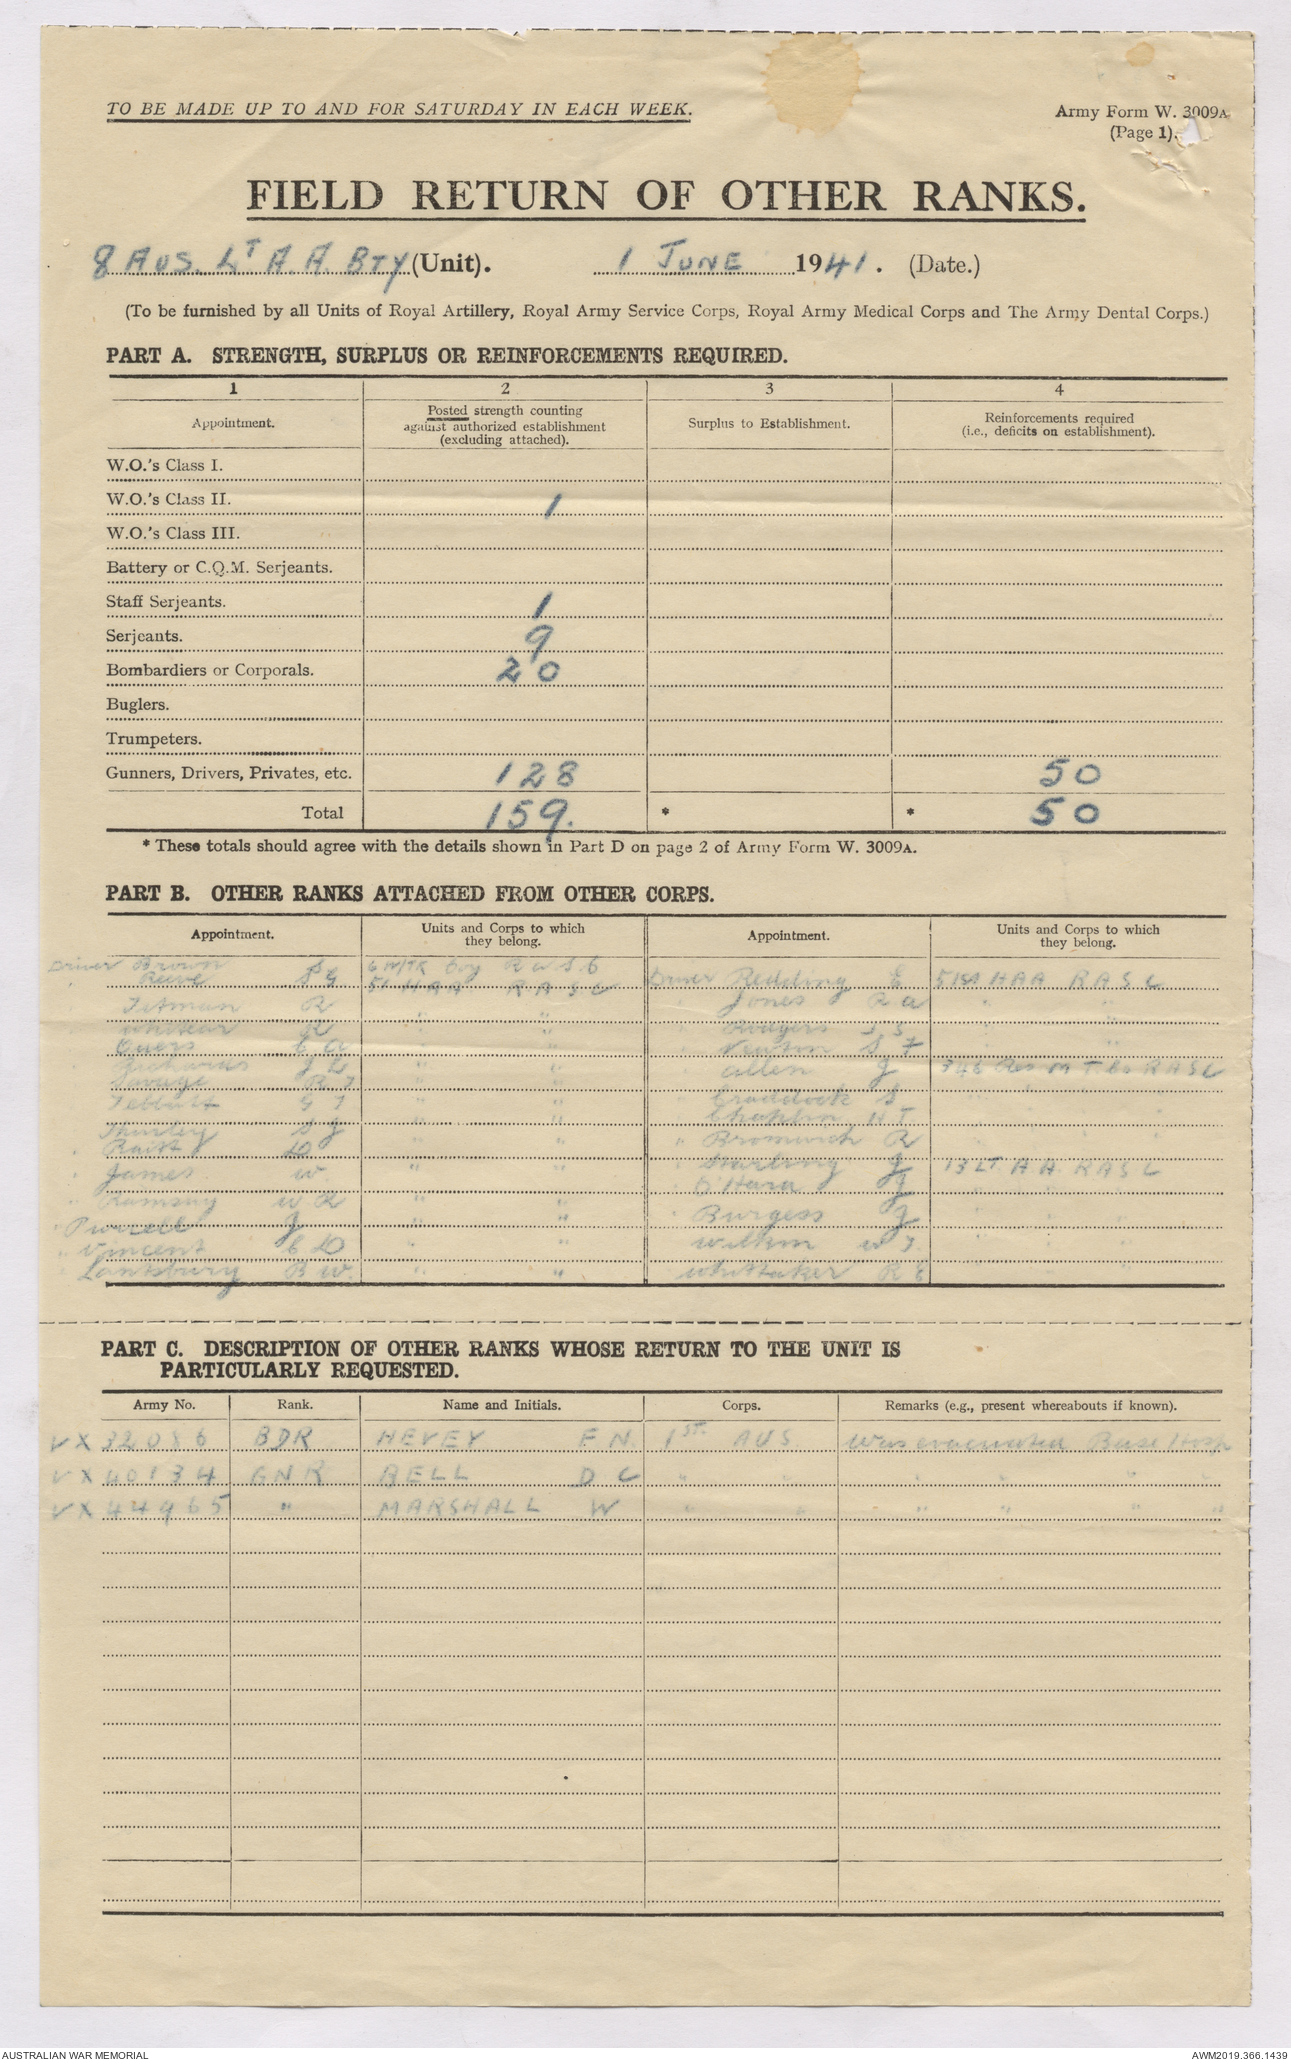 TO BE MADE UP TO AND FOR SATURDAY IN EACH WEEK.
Army Form W. 3009A
(Page 1).
FIELD RETURN OF OTHER RANKS.
8 AUS. LT A.A. BTY (Unit). 1 JUNE 1941. (Date.)
(To be furnished by all Units of Royal Artillery, Royal Army Service Corps, Royal Army Medical Corps and The Army Dental Corps.)
PART A. STRENGTH, SURPLUS OR REINFORCEMENTS REQUIRED.
1 2 3 4
Appointment. Posted strength counting against authorized establishment (excluding attached). Surplus to Establishment. Reinforcements required (i.e., deficits on establishment).
W.O.'s Class I.
W.O.'s Class II. 1
W.O.'s Class III.
Battery or C.Q.M. Serjeants.
Staff Serjeants. 1
Serjeants. 9
Bombardiers or Corporals. 20
Buglers.
Trumpeters.
Gunners, Drivers, Privates, etc. 128 50
Total 159. * * 50
* These totals should agree with the details shown in Part D on page 2 of Army Form W. 3009A.
PART B. OTHER RANKS ATTACHED FROM OTHER CORPS.
Appointment. Units and Corps to which they belong. Appointment. Units and Corps to which they belong.
Driver Brown
Reeve S G 51 HAA R A S C Driver Redding E 51st HAA R A S C
R " " Jones R A " "
R " " Rodgers " "
" " Newton S F " "
" " Allen J R A S C
Savage R J " " Craddock S
Tebbutt G J " " Chaplin H T
S J " " " Bromwich R
" D " " Starling J 13 LT A.A. R A S C
" James W. " " O'Hara J " "
" Ramsay W R " " " Burgess J " "
" Purcell J " " W J " "
" Vincent C D " " Whittaker R E " "
" Lansbury B W. " "
PART C. DESCRIPTION OF OTHER RANKS WHOSE RETURN TO THE UNIT IS
PARTICULARLY REQUESTED.
Army No. Rank. Name and Initials. Corps. Remarks (e.g., present whereabouts if known).
VX 32086 BDR HEVEY F N. 1ST. AUS. Was evacuated Base Hosp
VX 40134 GNR BELL D C " " " " " "
VX 44965 " MARSHALL W " " " " " "
AUSTRALIAN WAR MEMORIAL
AWM2019.366.1439